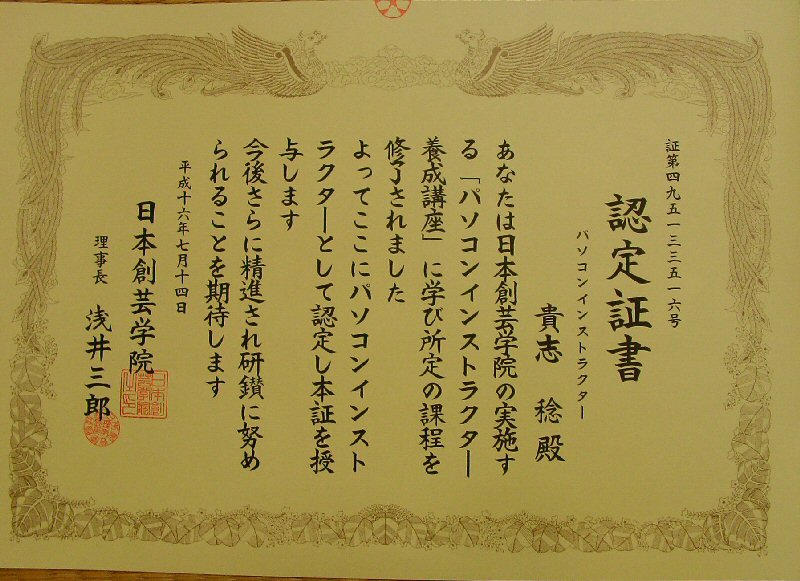 証第四九五一三三五一六号
認定証書
パソコンインストラクター
貴志 稔殿
あなたは日本創芸学院の実施す
る「パソコンインストラクター
養成講座」に学び所定の課程を
修了されました
よってここにパソコンインスト
ラクターとして認定し本証を授
与します
今後さらに精進され研鑚に努め
られることを期待します
平成十六年七月十四日
日本創芸学院
理事長 浅井三郎